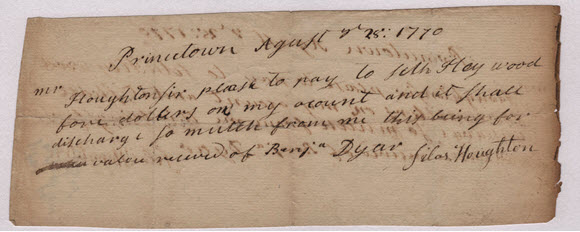 Princetown Agust ye 28: 1770
mr Houghton sir please to pay to Seth Hey wood
fore dollars on my acount and it shall
discharge so mutch from me this being for
value receve of Benja Dyar Silas Houghton